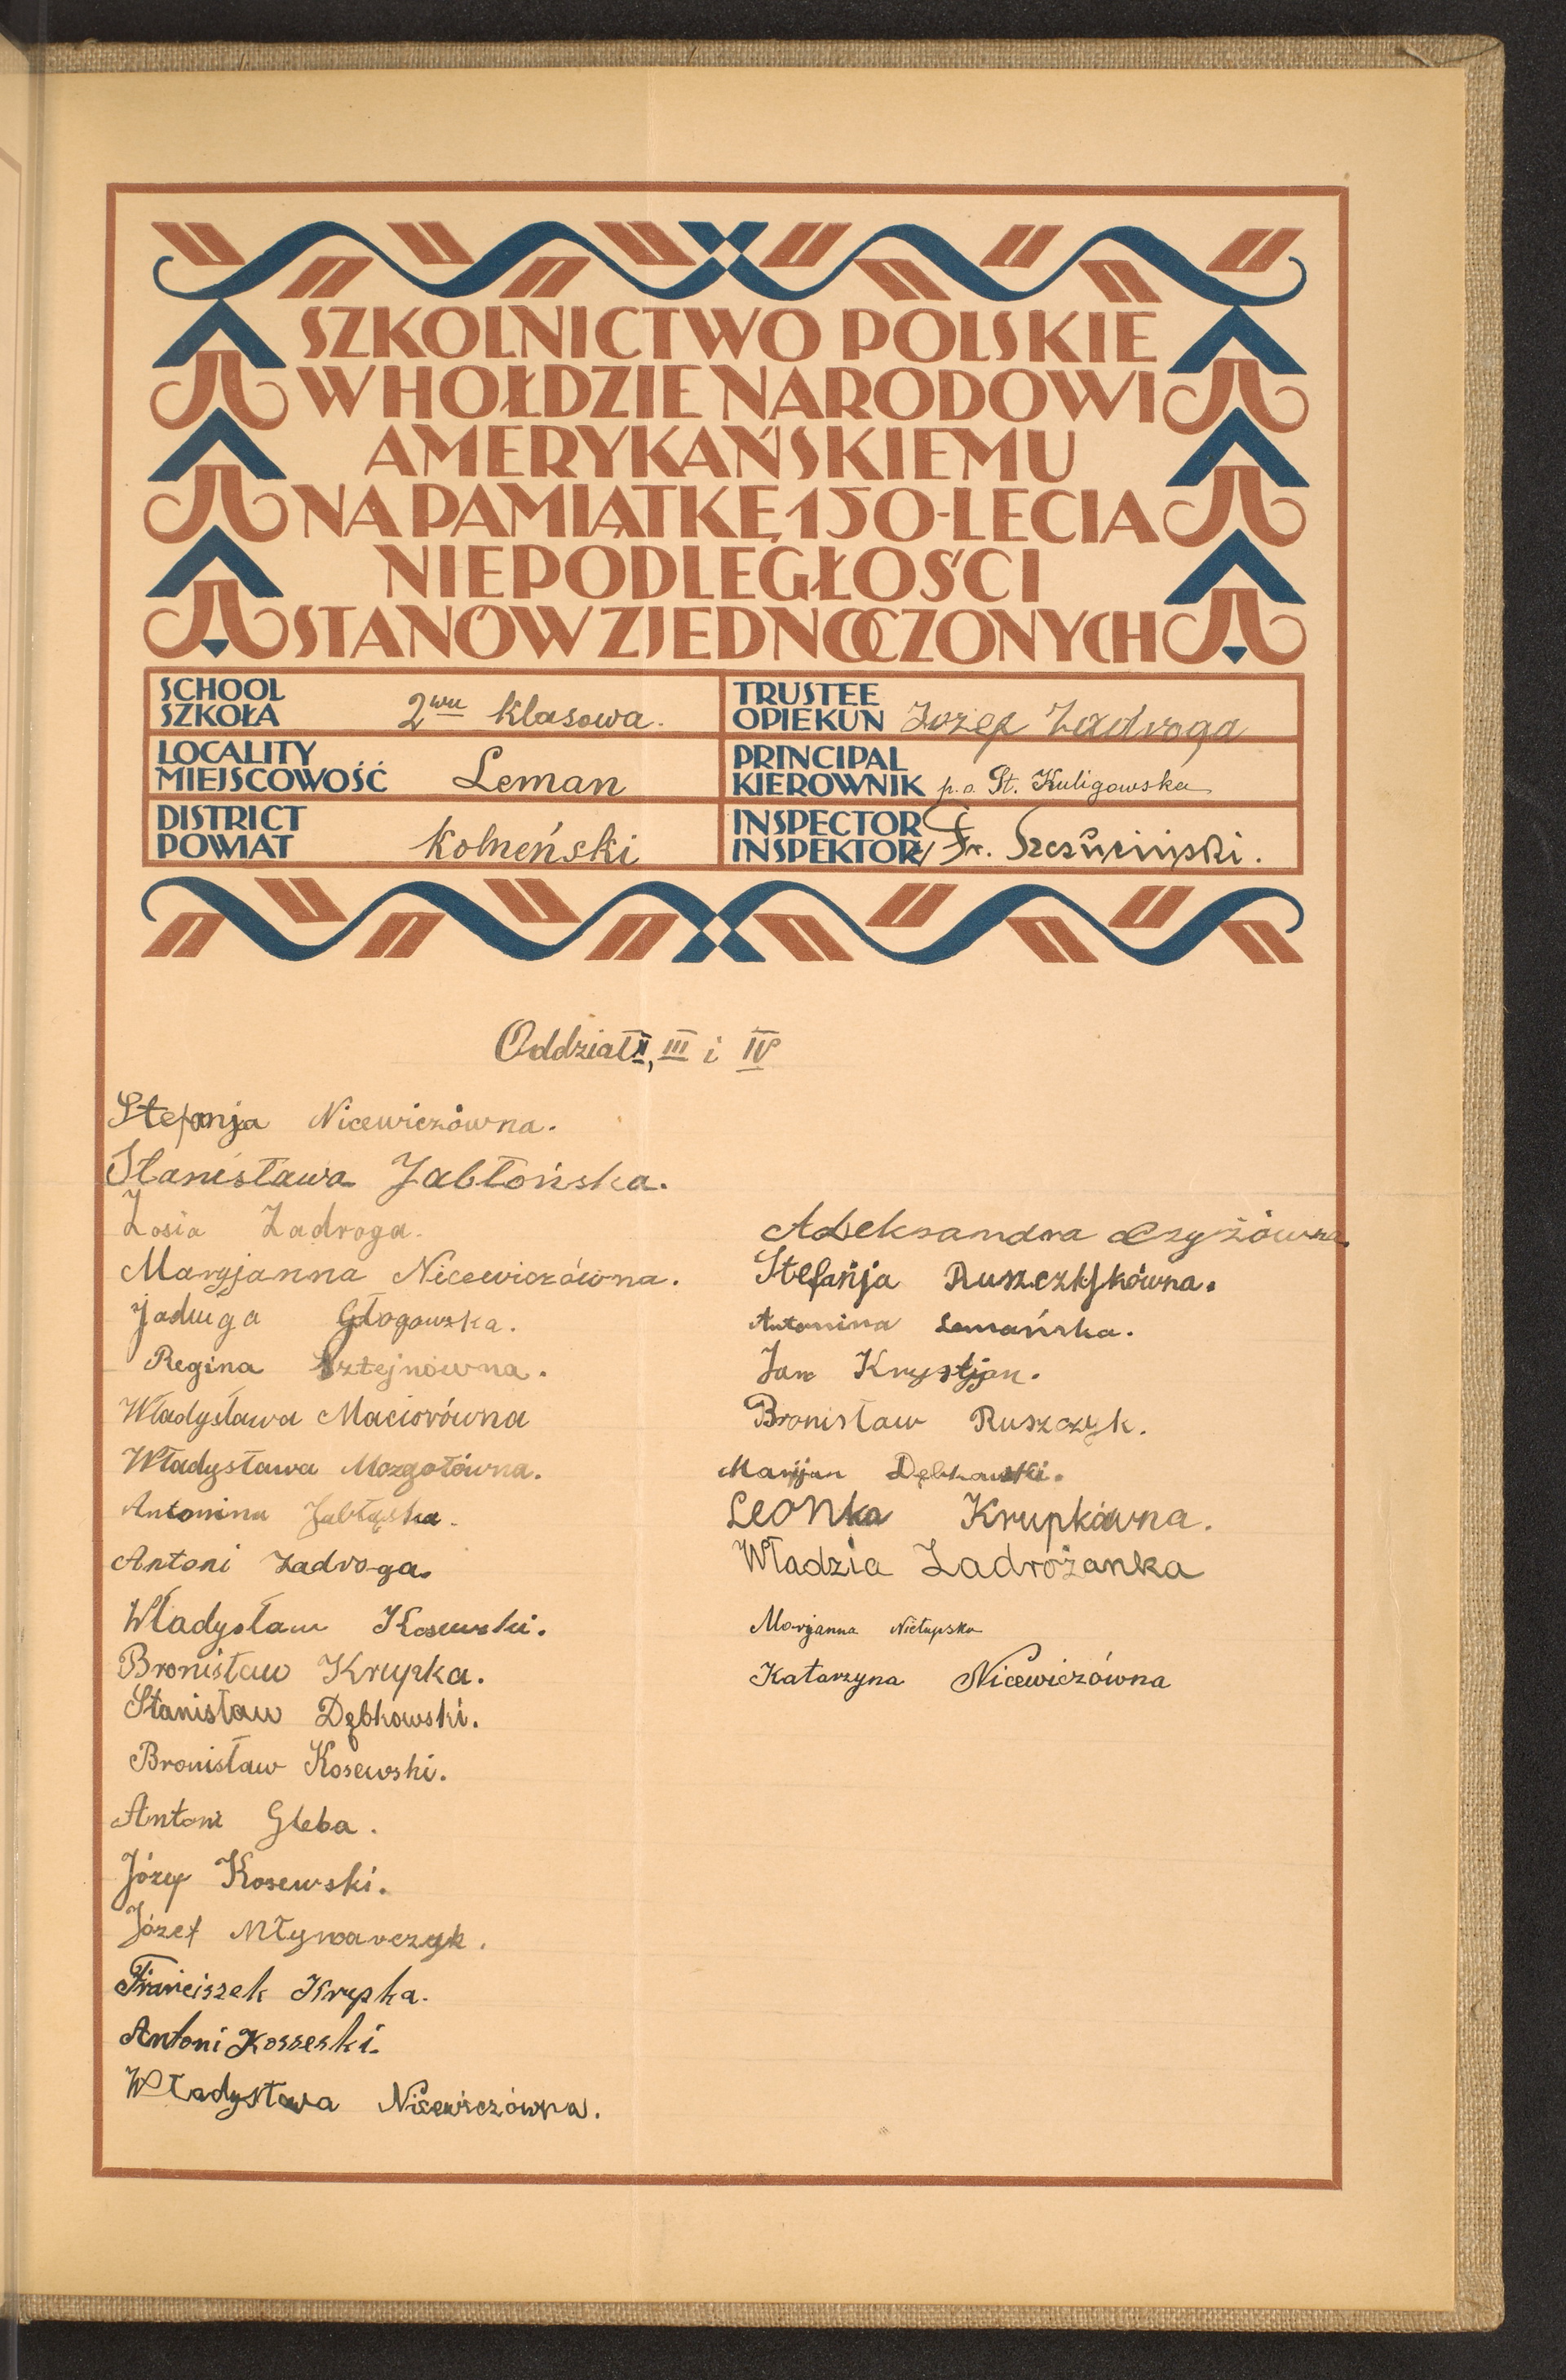 SZKOLNICTWO POLSKIE
W HOŁDZIE NARODOWI
AMERYKAŃSKIEMU
NA PAMIĄTKĘ 150-LECIA
NIEPODLEGŁOŚCI
STANÓW ZJEDNOCZONYCH
SCHOOL
SZKOŁA 2wu klasowa.
TRUSTEE
OPIEKUN Józef Zadroga
LOCALITY
MIEJSCOWOŚĆ Leman
PRINCIPAL
KIEROWNIK p.o. St. Kuligowska
DISTRICT
POWIAT Kolneński
INSPECTOR
INSPEKTOR Fr.
Oddział II, III i IV
Stefanja Nicewiczówna.
Stanisława Jabłońska.
Zosia Zadroga.
Maryjanna Nicewiczówna.
Jadwiga Głogowska.
Regina Sztejnówna.
Władysława Maciorówna
Władysława Mozgołówna.
Antonina
Antoni Zadroga.
Władysław Kosewski.
Bronisław Krupka.
Stanisław Dębkowski.
Bronisław Kosewski.
Antoni Gleba.
Józef Kosewski.
Józef Młynarczyk.
Franciszek Krupka.
Antoni Kosseski.
Władysława Nicewiczówna.
Aleksandra Czyżówna.
Stefańja Ruszczykówna.
Antonina Lemańska.
Jan Krystjan.
Bronisław Ruszczyk.
Marjjan Dębkowski.
Leonka Krupkówna.
Władzia Zadrożanka
Marjanna Niełupska
Katarzyna Nicewiczówna